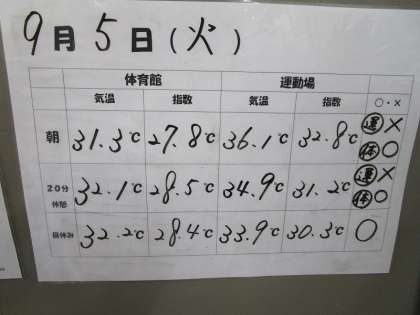 9月5日(火)
体育館 運動場
気温 指数 気温 指数 ○・×
朝 31.3℃ 27.8℃ 36.1℃ 32.8℃ 運× 体○
20分休憩 32.1℃ 28.5℃ 34.9℃ 31.2℃ 運× 体○
昼休み 32.2℃ 28.4℃ 33.9℃ 30.3℃ ○